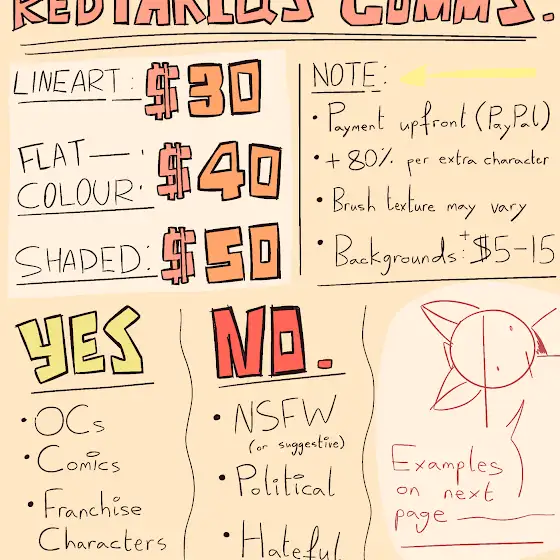 REDTARIUS COMMS.
LINEART: $30
FLAT—
COLOUR: $40
SHADED: $50
NOTE:
• Payment upfront (PayPal)
• + 80% per extra character
• Brush texture may vary
• Backgrounds: +$5-15
YES
• OCs
• Comics
• Franchise
Characters
NO.
• NSFW
(or suggestive)
• Political
• Hateful
Examples
on next
page